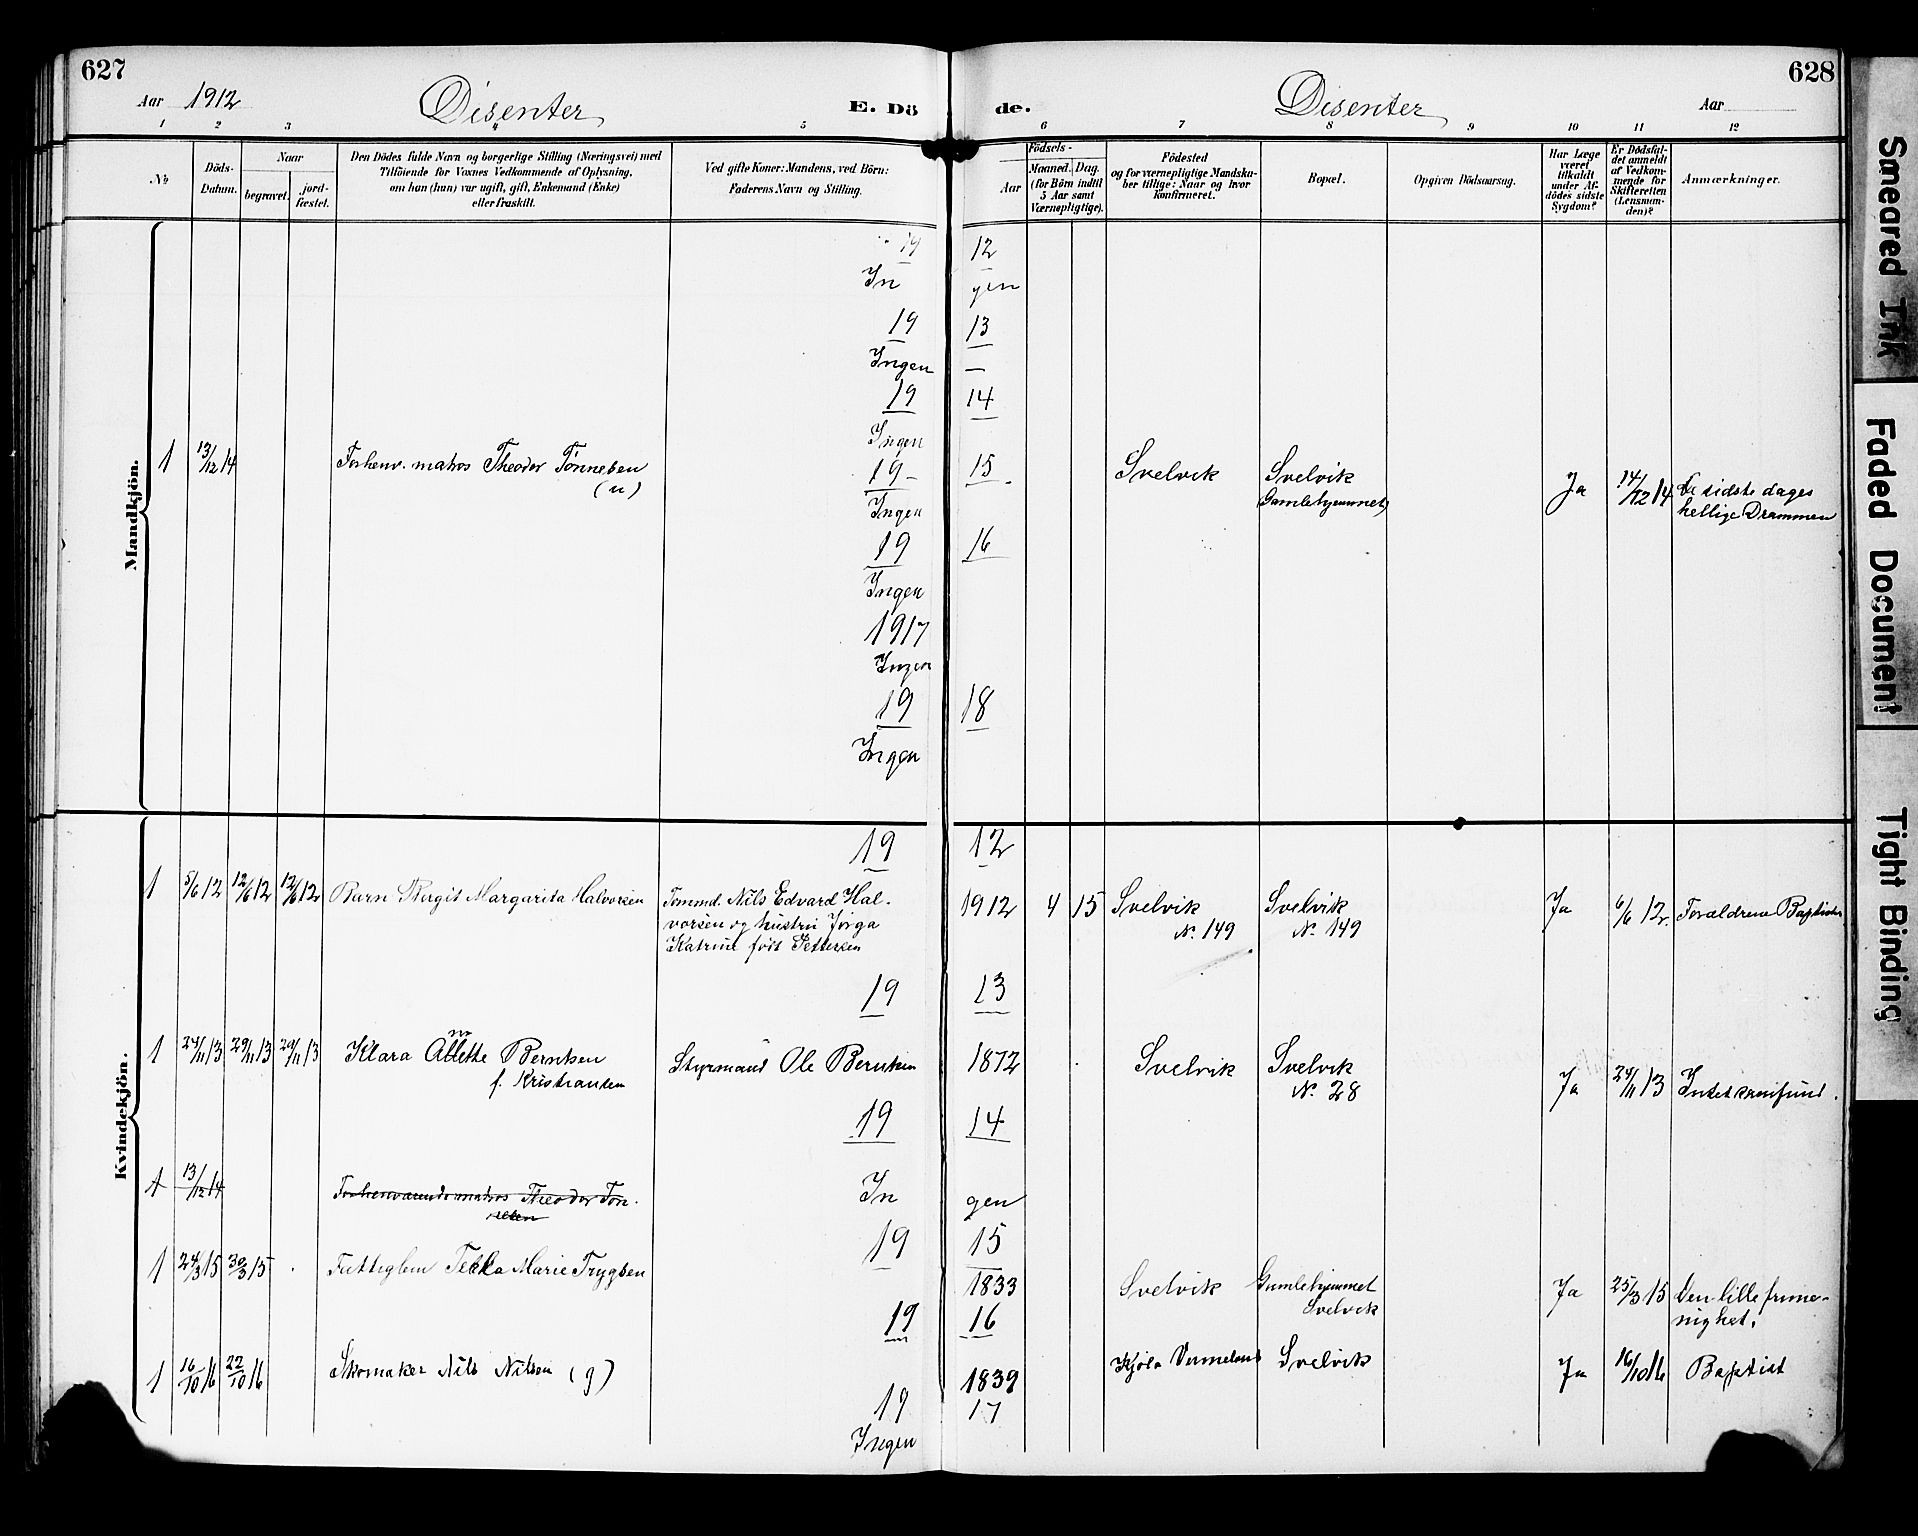 627
Aar 1912
Disenter
E. Dö
de.
Disenter
Aar
628
1 2 3 4 5 6 7 8 9 10 11 12
No
Döds-
Datum.
Naar
begravet.
jord-
fæstet.
Den Dödes fulde Navn og borgerlige Stilling (Næringsvei) med
Tilföiende for Voxnes Vedkommende af Oplysning,
om han (hun) var ugift, gift, Enkemand (Enke)
eller fraskilt.
Ved gifte Koner: Mandens, ved Börn:
Faderens Navn og Stilling.
Födsels-
Aar
Maaned. Dag.
(for Börn indtil
5 Aar samt
Værnepligtige).
Födested
og for værnepligtige Mandska-
ber tillige: Naar og hvor
Konfirmeret.
Bopæl.
Opgiven Dödsaarsag.
Har Læge
været
tilkaldt
under Af-
dödes sidste
Sygdom?
Er Dödsfal-
det anmeldt
af Vedkom-
mende for
Skifteretten
(Lensman-
den)?
Anmærkninger.
Mandkjön.
19 12
In gen
19 13
Ingen —
19 14
Ingen
1 13/12 14 Forhenv. matros Theodor Tønnesen Svelvik Svelvik Ja 14/12 14 De sidste dages
(u) (Gamlehjemmet) hellige Drammen
19 15
Ingen
19 16
Ingen
1917
Ingen
19 18
Ingen
Kvindekjön.
19 12
1 5/6 12 12/6 12 12/6 12 Barn Birgit Margarita Halvorsen Tømmd. Nils Edvard Hal- 1912 4 15 Svelvik Svelvik Ja 6/6 12. Forældrene Baptister
vorsen og hustru Jørga N. 149 N. 149
Katrine født Pettersen
19 13
1 24/11 13 29/11 13 29/11 13 Klara Berntsen Styrmand Ole Berntsen 1872 Svelvik Svelvik Ja 24/11 13 Intet samfund.
f. Kristiansen N. 28
19 14
1 13/12 14 Forhenværende matros Theodor Tøn-
nesen
In gen
19 15
1 24/3 15 30/3 15 Marie Trygsen 1833 Svelvik Gamlehjemmet Ja 25/3 15 Den lille
Svelvik nighet.
19 16
1 16/10 16 22/10 16 Skomaker Nils Nilsen (g) 1839 Svelvik Ja 16/10 16 Baptist
19 17
Ingen
Smeared Ink
Faded Document
Tight Binding